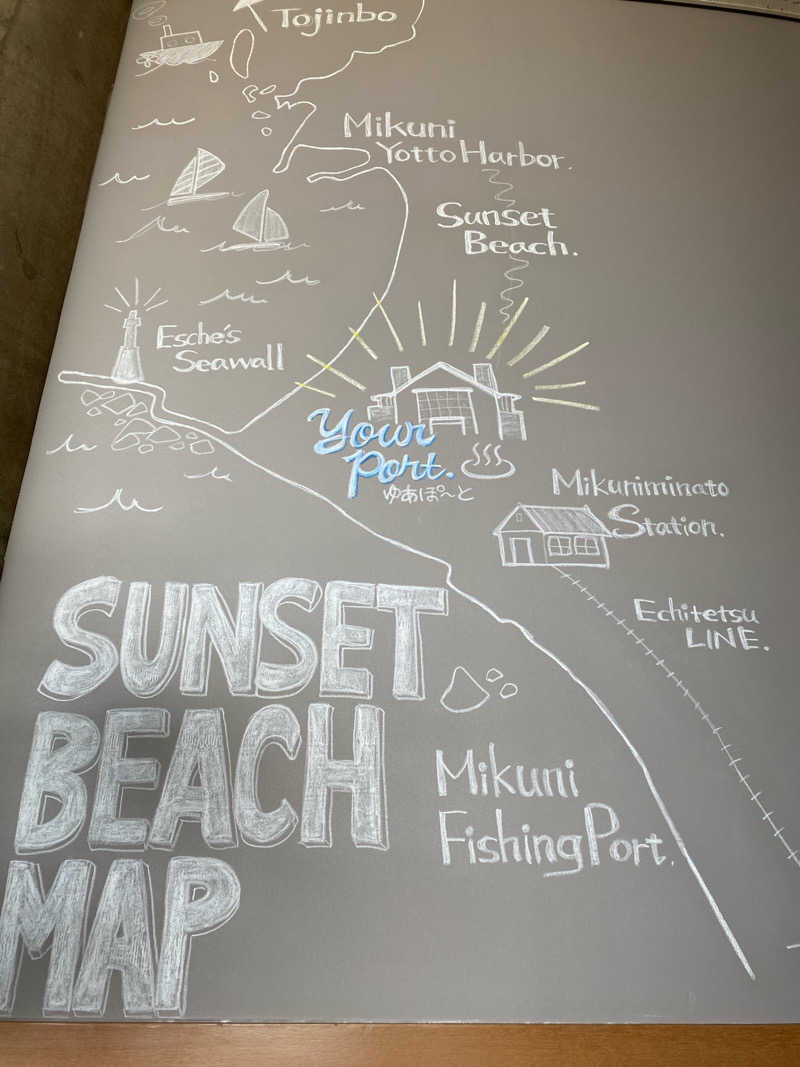 Tojinbo
Mikuni
Yotto Harbor.
Sunset
Beach.
Esche's
Seawall
Your
Port.
ゆあぽ〜と
Mikuniminato
Station.
Echitetsu
LINE.
SUNSET
BEACH
MAP
Mikuni
Fishing Port.